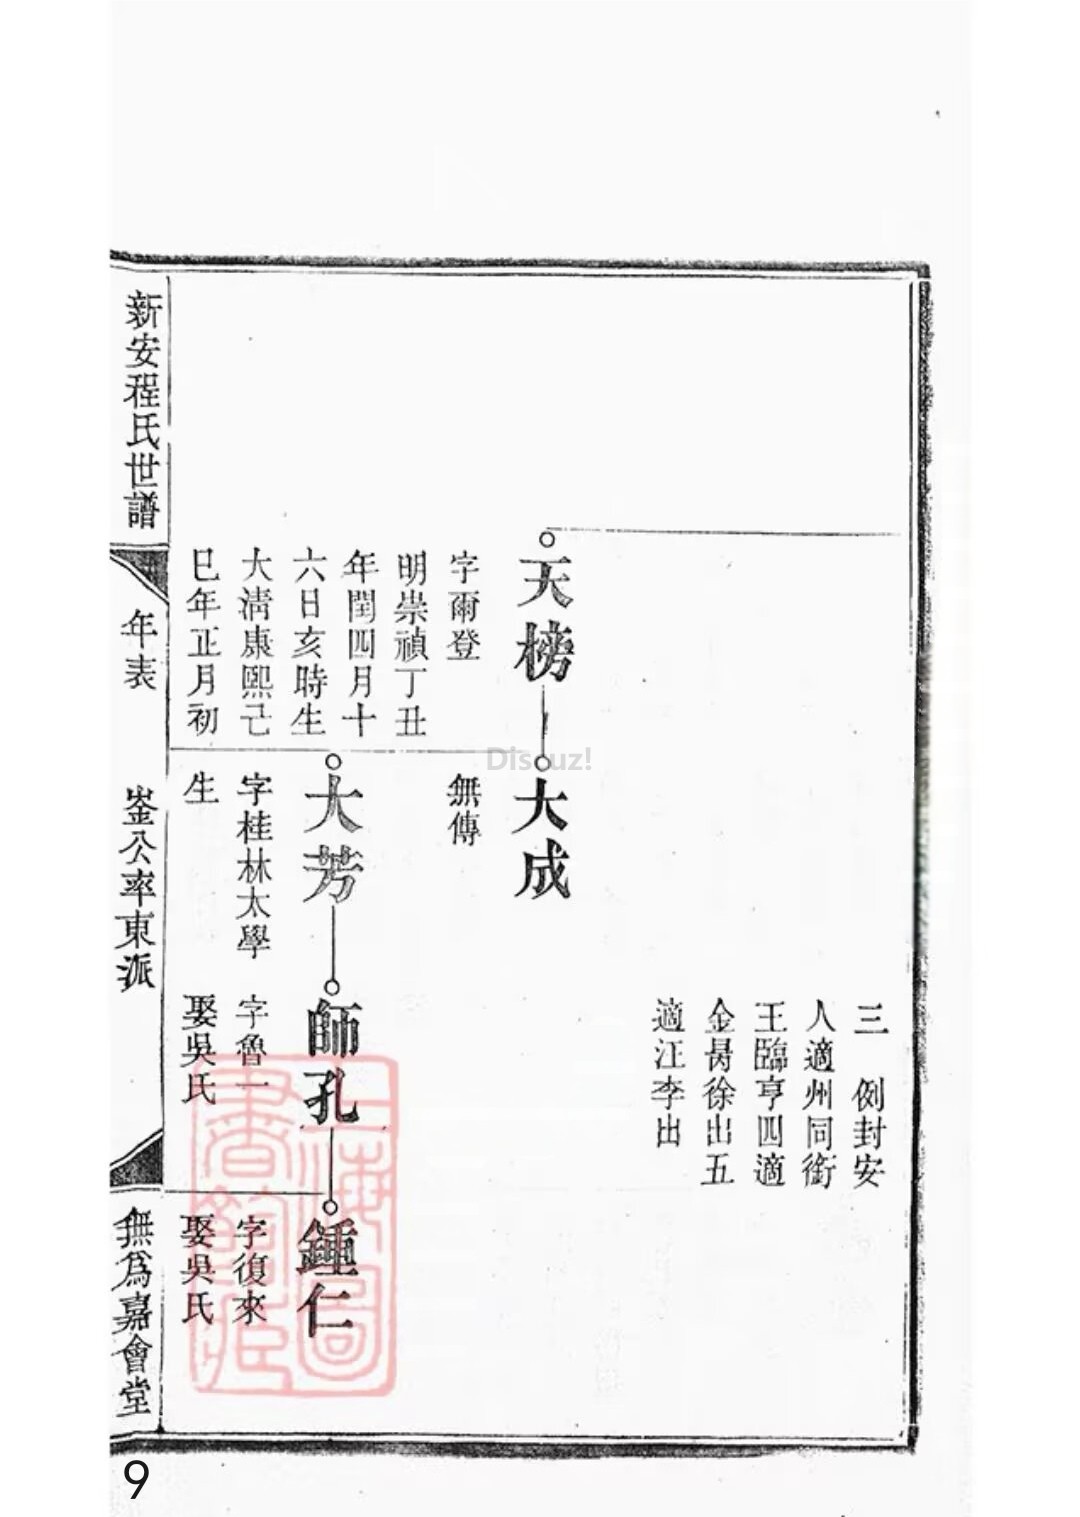 三　例封安
人適州同銜
王臨亨四適
金昺徐出五
適汪李出
天榜
字爾登
明崇禎丁丑
年閏四月十
六日亥時生
大清康熙己
巳年正月初
大成
無傳
大芳
字桂林太學
生
師孔
字魯一
娶吳氏
鍾仁
字復來
娶吳氏
新安程氏世譜
年表
崟公率東派
無為嘉會堂
上海圖
書館藏
Discuz!
9